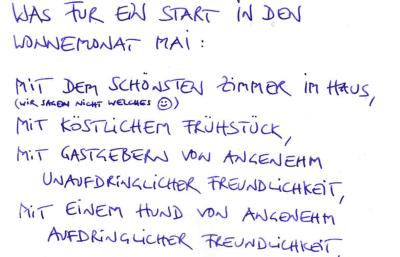 WAS FÜR EIN START IN DEN
WONNEMONAT MAI:
MIT DEM SCHÖNSTEN ZIMMER IM HAUS,
(WIR SAGEN NICHT WELCHES ☺)
MIT KÖSTLICHEM FRÜHSTÜCK,
MIT GASTGEBERN VON ANGENEHM
UNAUFDRINGLICHER FREUNDLICHKEIT,
MIT EINEM HUND VON ANGENEHM
AUFDRINGLICHER FREUNDLICHKEIT.